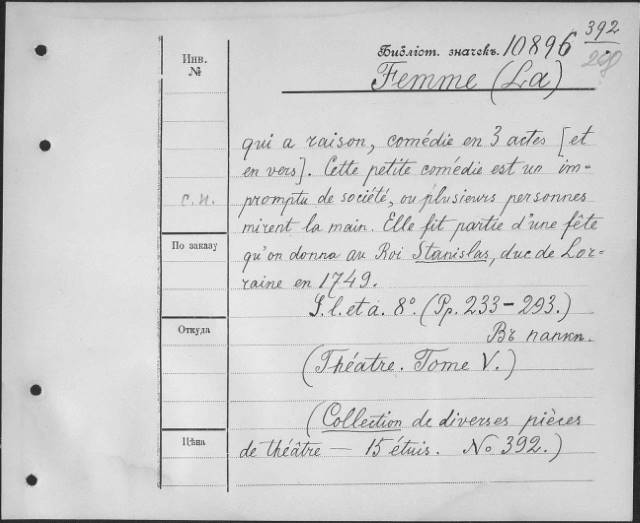 392
Библіот. значекъ. 10896
Femme (La)
Инв.
№
qui a raison, comédie en 3 actes [et
en vers]. Cette petite comédie est un im-
promptu de société, ou plusieurs personnes
с.п.
mirent la main. Elle fit partie d'une fête
По заказу
qu'on donna au Roi Stanislas, duc de Lor-
raine en 1749.
S. l. et a. 8°. (Pp. 233-293.)
Откуда
Въ папкѣ.
(Théatre. Tome V.)
(Collection de diverses pièces
Цѣна
de théâtre — 15 étuis. No 392.)